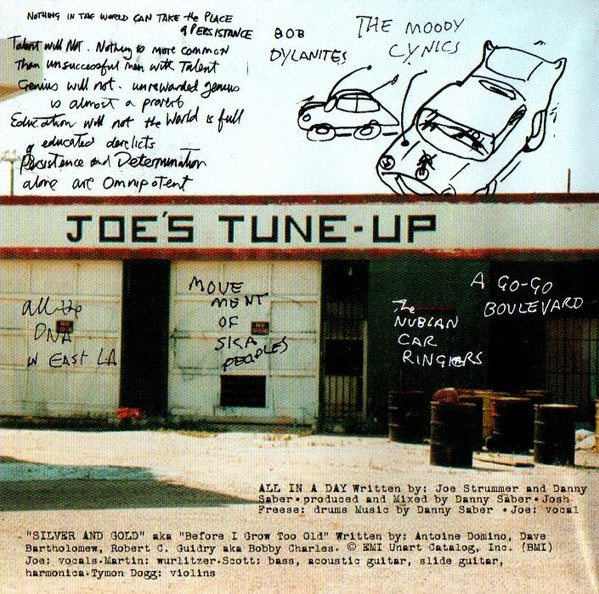 NOTHING IN THE WORLD CAN TAKE the PLACE
of PERSISTANCE
Talent will NOT. Nothing is more common
Than unsuccessful men with Talent
Genius will not. unrewarded genius
is almost a proverb
Education will not the World is full
of educated derelicts
Persistence and Determination
alone are Omnipotent
BOB
DYLANITES
THE MOODY
CYNICS
JOE'S TUNE-UP
all the
DNA
in EAST LA
MOVE
MENT
OF
SKA
PEOPLES
The
NUBIAN
CAR
RINGERS
A GO-GO
BOULEVARD
ALL IN A DAY Written by: Joe Strummer and Danny
Saber•produced and Mixed by Danny Saber•Josh
Freese: drums Music by Danny Saber •Joe: vocal
"SILVER AND GOLD" aka "Before I Grow Too Old" Written by: Antoine Domino, Dave
Bartholomew, Robert C. Guidry aka Bobby Charles. © EMI Unart Catalog, Inc. (BMI)
Joe: vocals•Martin: wurlitzer•Scott: bass, acoustic guitar, slide guitar,
harmonica•Tymon Dogg: violins